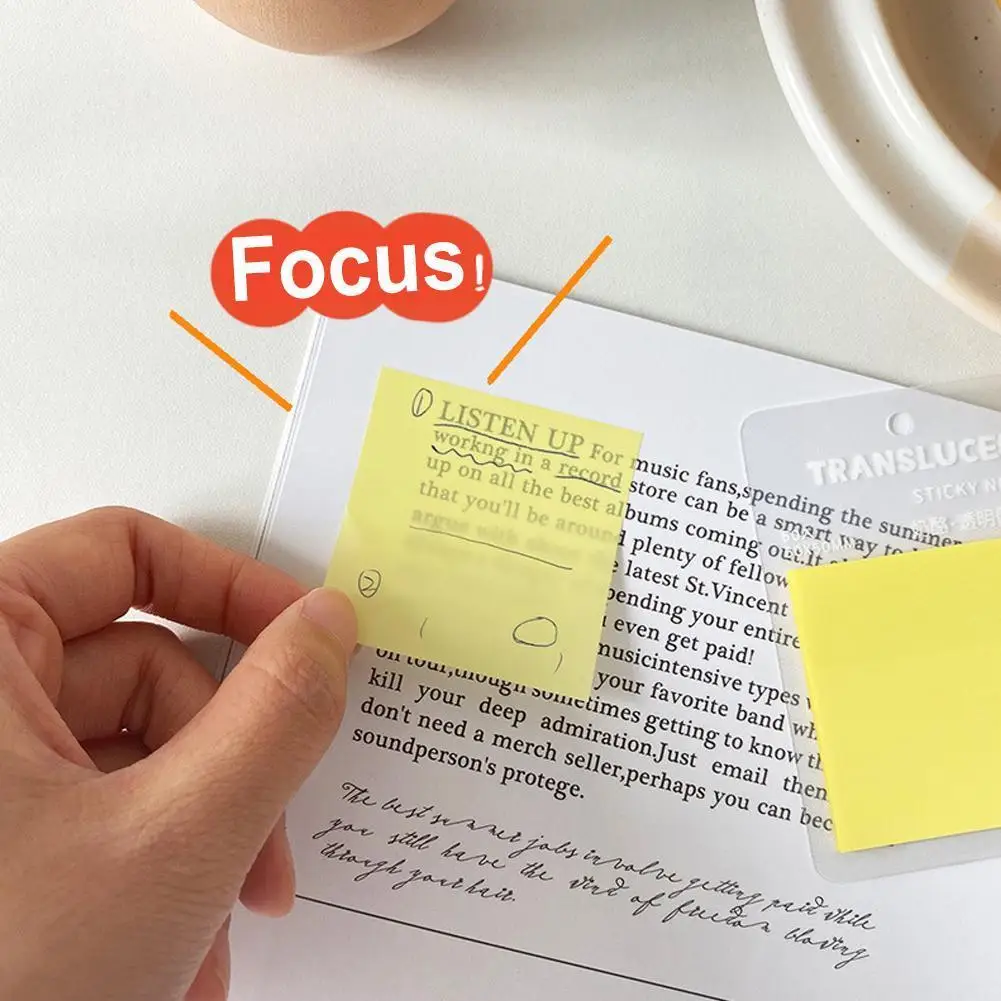 Focus!
TRANSLUCE
STICKY N
50X50MM
① LISTEN UP For music fans,spending the summer
workng in a record store can be a smart way to
up on all the best albums coming out.It
that you'll be around plenty of fellow
argue with latest St.Vincent
pending your entire
even get paid!
musicintensive types
on tour,though sometimes getting to know th
kill your deep admiration.Just email then
don't need a merch seller,perhaps you can bec
soundperson's protege.
your favorite band wh
②
The best summer jobs involve getting paid while
you still have the kind of freedom blowing
through your hair.